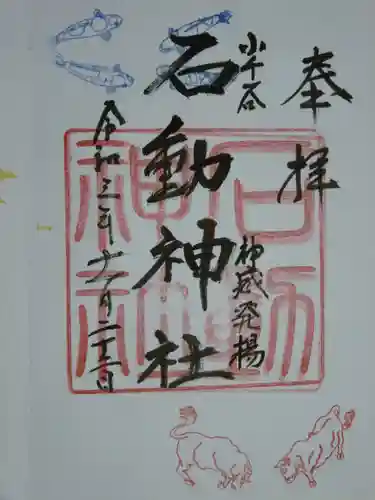 奉拝
小千谷
石動神社
神威発揚
令和三年十一月二十三日
石動神社